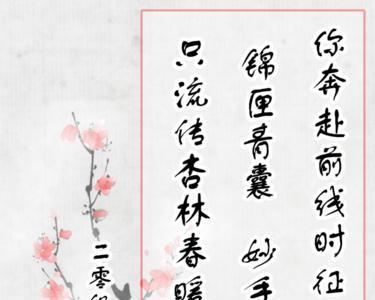 你奔赴前线时征
锦匣青囊 妙手
只流传杏林春暖
二零